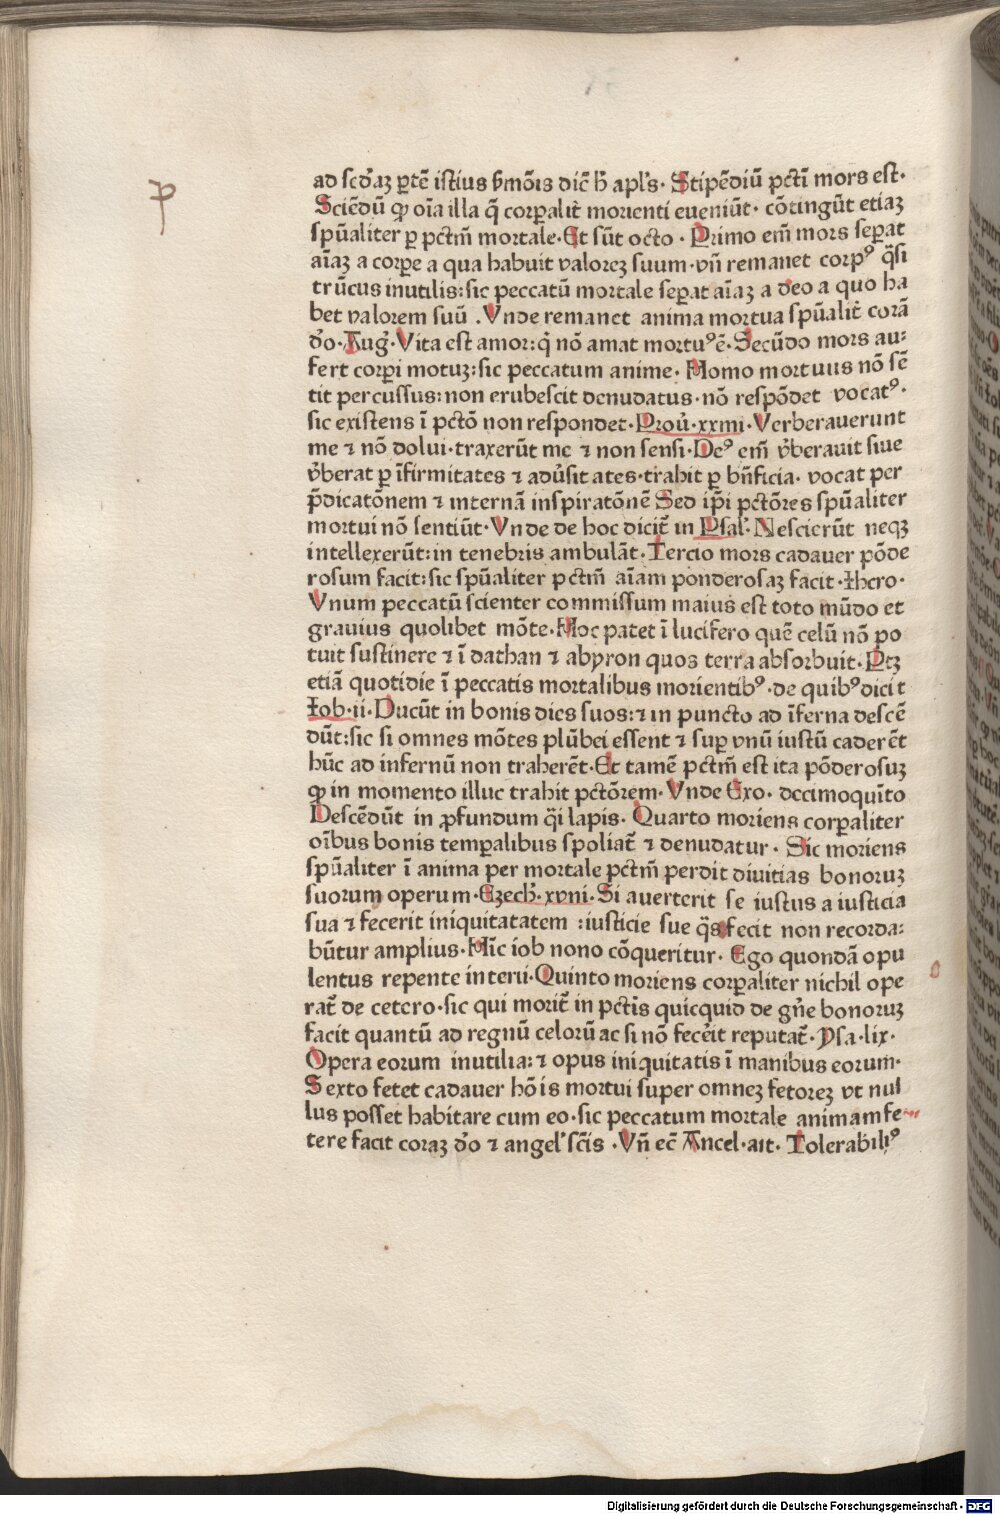 ad scd'aꝫ ꝑtē istius ẜmōis dic̄ h̄ apl's· Stipēdiū pctī mors est·
Sciēdū ꝙ oīa illa q̄ corꝑalit̄ morienti eueniūt· cōtingūt etiaꝫ
spūaliter ꝑ pctm̄ mortale· Et sūt octo · Primo em̄ mors seꝑat
aīaꝫ a corꝑe a qua habuit valoreꝫ suum· vn̄ remanet corpꝰ q̄si
trūcus inutilis: sic peccatū mortale seꝑat aīaꝫ a deo a quo ha
bet valorem suū . Vnde remanet anima mortua spūalit̄ corā
d'o· Aug̓· Vita est amor: q̇ nō amat mortuꝰ ē· Secūdo mors au:
fert corꝑi motuꝫ: sic peccatum anime· Homo mortuus nō sē
tit percussus: non erubescit denudatus· nō respōdet vocatꝰ·
sic existens ī pctō non respondet· Prou̓· xxiii· Verberauerunt
me ⁊ nō dolui· traxerūt me ⁊ non sensi· Deꝰ em̄ v̓berauit siue
v̓berat ꝑ īfirmitates ⁊ adu̓sitates· trahit ꝑ bn̄ficia· vocat per
p̄dicatōnem ⁊ internā inspiratōnē Sed ip̄i pctōres spūaliter
mortui nō sentiūt· Vnde de hoc dicit̄ in Psal'· Nescierūt neqꝫ
intellexerūt: in tenebris ambulāt· Tercio mors cadauer pōde
rosum facit: sic spūaliter pctm̄ aīam ponderosaꝫ facit· Ihero·
Vnum peccatū scienter commissum maius est toto mūdo et
grauius quolibet mōte· Hoc patet ī lucifero quē celū nō po
tuit sustinere ⁊ ī dathan ⁊ abyron quos terra absorbuit· Ptꝫ
etiā quotidie ī peccatis mortalibus morientibꝰ· de quibꝰ dicit
Iob· ii· Ducūt in bonis dies suos: ⁊ in puncto ad īferna descē
dūt: sic si omnes mōtes plūbei essent ⁊ suꝑ vnū iustū caderēt
hūc ad infernū non traherēt· Et tamē pctm̄ est ita pōderosuꝫ
ꝙ in momento illuc trahit pctōrem· Vnde Exo· decimoquīto
Descēdūt in ꝓfundum q̄i lapis· Quarto moriens corꝑaliter
oībus bonis temꝑalibus spoliat̄ ⁊ denudatur· Sic moriens
spūaliter ī anima per mortale pctm̄ perdit diuitias bonoruꝫ
suorum operum· Ezech̓· xviii· Si auerterit se iustus a iusticia
sua ⁊ fecerit iniquitatatem : iusticie sue q̄s fecit non recorda:
būtur amplius· Hīc iob nono cōqueritur· Ego quondā opu
lentus repente interii· Quinto moriens corꝑaliter nichil ope
rat̄ de cetero· sic qui morit̄ in pctīs quicquid de gn̄e bonoruꝫ
facit quantū ad regnū celorū ac si nō fecēit reputat̄· Ysa· lix·
Opera eorum inutilia: ⁊ opus iniquitatis ī manibus eorum·
Sexto fetet cadauer hōis mortui super omneꝫ fetoreꝫ vt nul
lus posset habitare cum eo· sic peccatum mortale animam fe
tere facit coraꝫ d'o ⁊ angel' sc̄is · Vn̄ ec̄ Ancel· ait· Tolerabiliꝰ
p
Digitalisierung gefördert durch die Deutsche Forschungsgemeinschaft - DFG